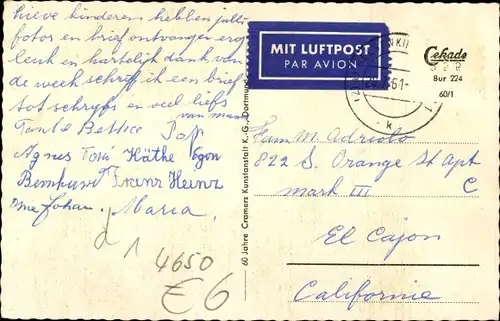 Lieve kinderen hebben jullie
fotos en brief ontvangen erg
leuk en hartelijk dank van
de week schrijf ik een brief
tot schrijfs en veel liefs
van mam
Tante Pap
Agnes Toni Käthe Egon
Bernhard Franz Heinz
Ome Johan. Maria.
1 4650
€6
MIT LUFTPOST
PAR AVION
Cekade
Bur 224
60/1
60 Jahre Cramers Kunstanstalt K.G., Dortmund
Fam M.
822 S. Orange St Apt
mark III C
El Cajon
Californie